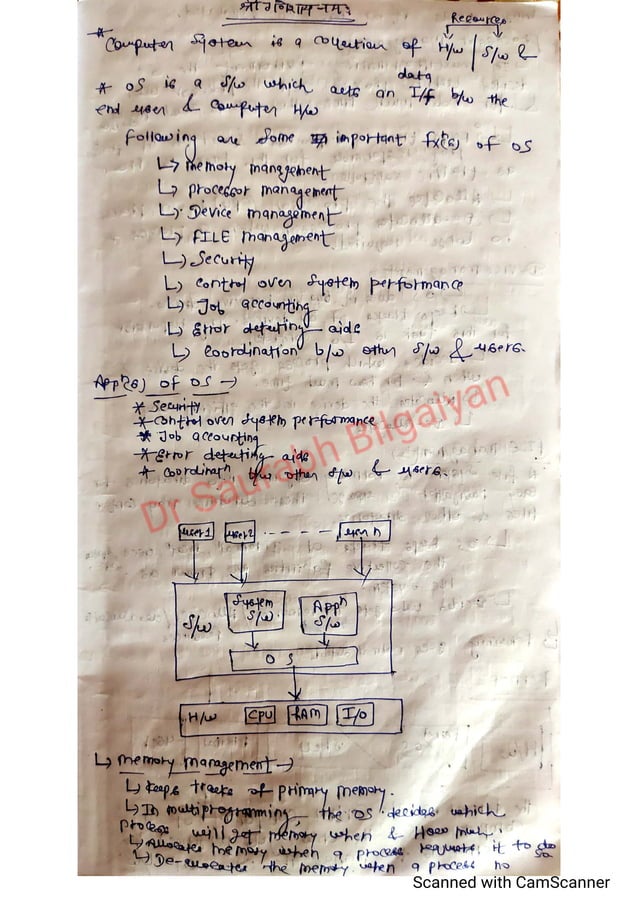 श्री गणेशाय नमः
Resources
* Computer System is a collection of H/w | S/w &
data
* OS is a S/w which acts an I/f b/w the
end user & computer H/w
Following are some important fx(s) of OS
↳ memory management
↳ processor management
↳ Device management
↳ FILE management
↳ Security
↳ control over system performance
↳ Job accounting
↳ Error detecting aids
↳ coordination b/w other S/w & users.
Appⁿ(s) of OS →
* Security
* control over system performance
* Job accounting
* Error detecting aids
* coordinatⁿ b/w other S/w & users.
Dr Saurabh Bilgaiyan
user1 user2 ------ user n
System
S/w
Appⁿ
S/w
S/w
OS
H/w CPU RAM I/O
↳ memory management →
↳ keeps tracks of primary memory.
↳ In multiprogramming, the OS decides which
process will get memory when & How much.
↳ Allocates memory when a process requests it to do so
↳ De-allocates the memory when a process no
Scanned with CamScanner